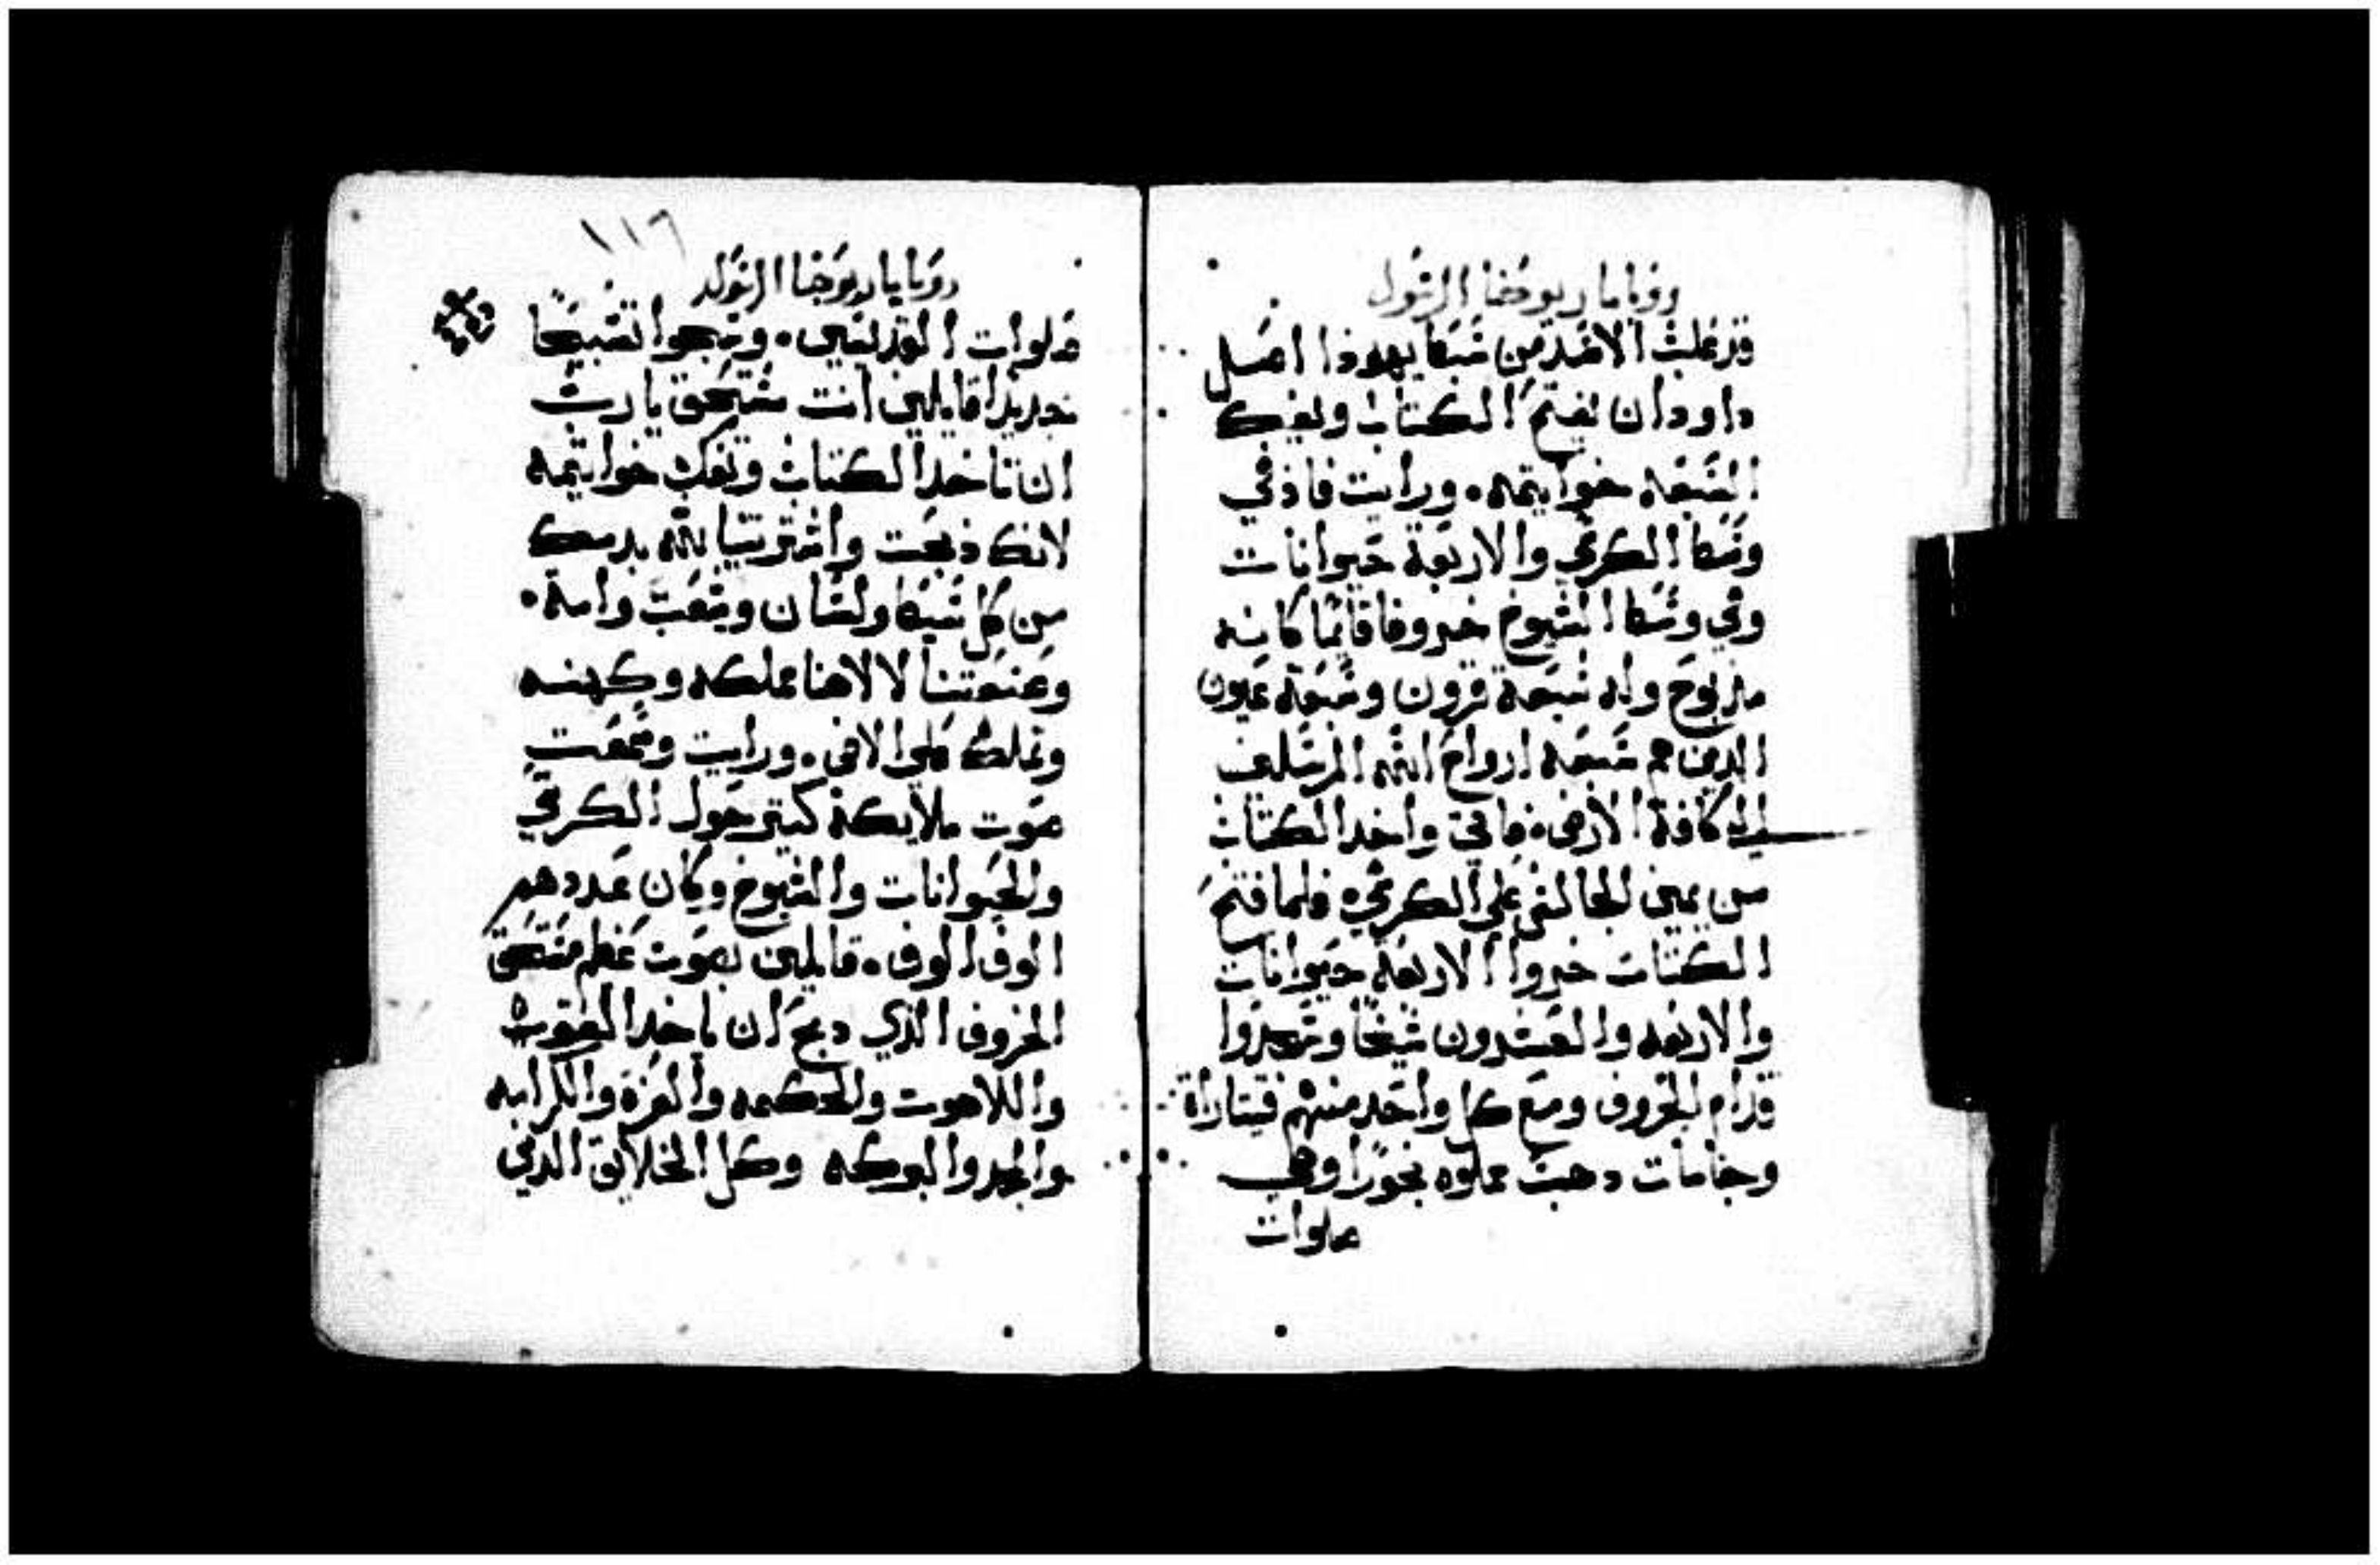 رويا مار يوحنا الرسول
قد غلب الاسد من سبط يهوذا اصل
داود ان يفتح الكتاب ويفك
السبعه خواتيمه. ورايت فاذ في
وسط الكرسي والاربعة حيوانات
وفي وسط الشيوخ خروفا قايما كانه
مذبوح وله سبعة قرون وسبعة عيون
الدين هم سبعه ارواح الله المرسلين
الي كافة الارض. فاتي واخد الكتاب
من يمين الجالس علي الكرسي. فلما فتح
الكتاب خروا الاربعة حيوانات
والاربعه والعشرون شيخا وسجدوا
قدام الخروف ومع كل واحد منهم قيتاراة
وجامات دهب مملوه بخورا وهي
صلوات
١١٦
رويا مار يوحنا الرسول
صلوات القديسين. وسبحوا تسبيحا
جديدا قايلين انت مستحق يا رب
ان تاخد الكتاب وتفك خواتيمه
لانك ذبحت واشتريتنا لله بدمك
من كل سبط ولسان وشعب وامة.
وصنعتنا لالاهنا مملكه وكهنه
ونملك علي الارض. ورايت وسمعت
صوت ملايكة كتير حول الكرسي
والحيوانات والشيوخ وكان عددهم
الوف الوف. قايلين بصوت عظيم مستحق
الخروف الذي دبح ان ياخد القوة
واللاهوت والحكمه والعزة والكرامه
والمجد والبركه وكل الخلايق الدين